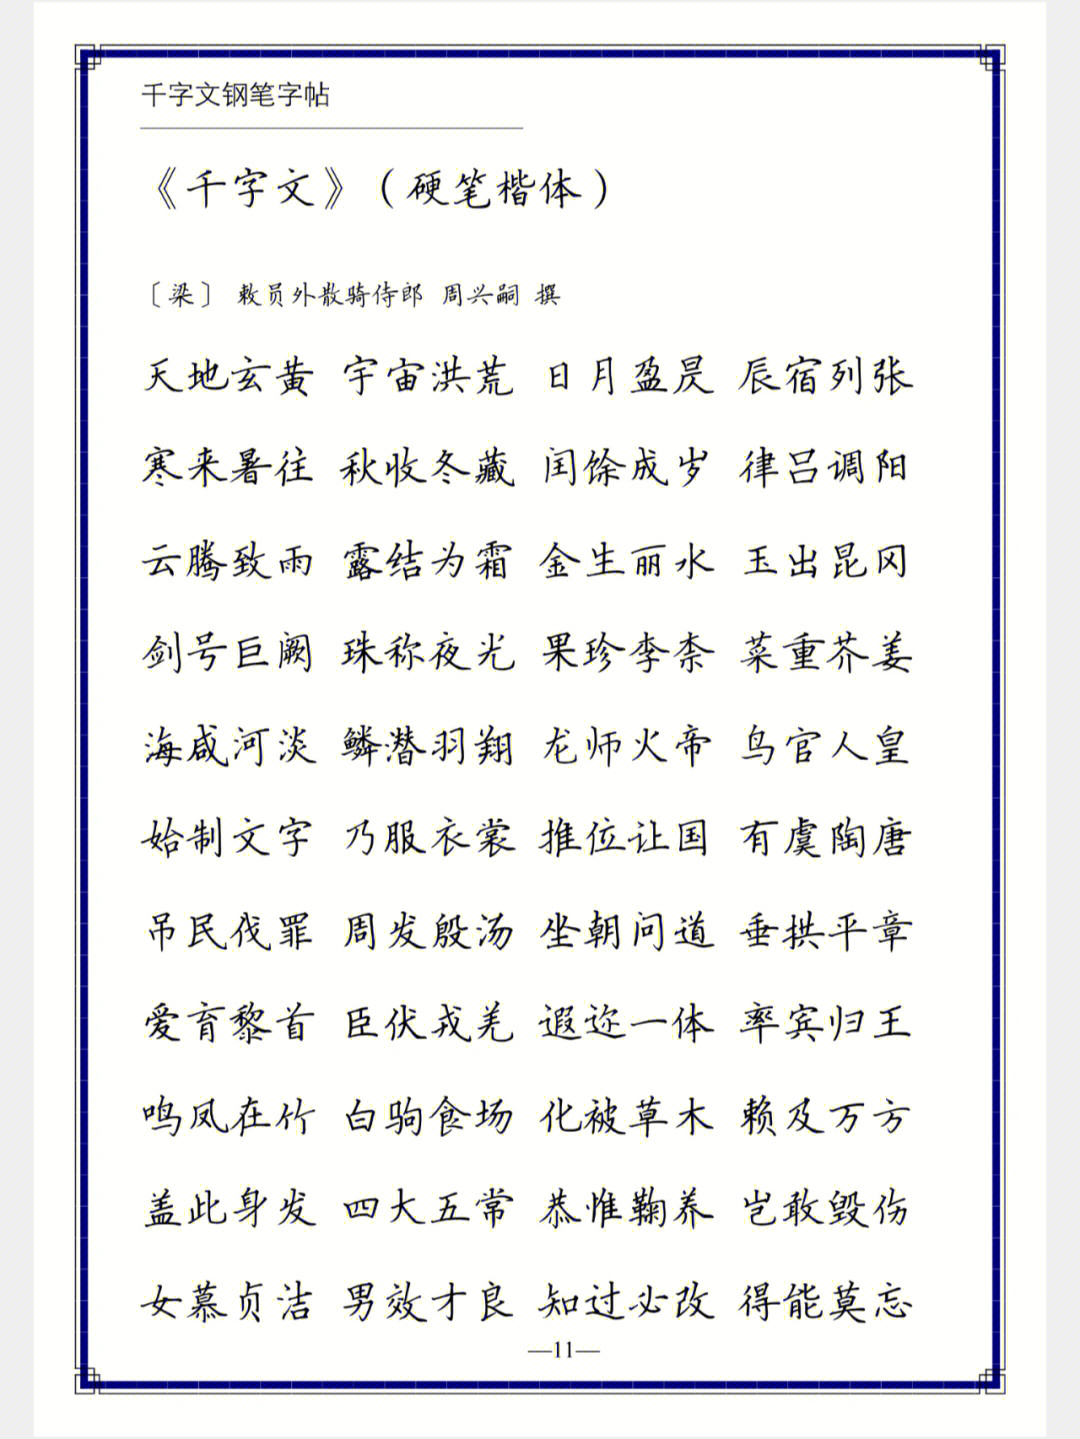 千字文钢笔字帖
《千字文》（硬笔楷体）
〔梁〕 敕员外散骑侍郎 周兴嗣 撰
天地玄黄 宇宙洪荒 日月盈昃 辰宿列张
寒来暑往 秋收冬藏 闰馀成岁 律吕调阳
云腾致雨 露结为霜 金生丽水 玉出昆冈
剑号巨阙 珠称夜光 果珍李柰 菜重芥姜
海咸河淡 鳞潜羽翔 龙师火帝 鸟官人皇
始制文字 乃服衣裳 推位让国 有虞陶唐
吊民伐罪 周发殷汤 坐朝问道 垂拱平章
爱育黎首 臣伏戎羌 遐迩一体 率宾归王
鸣凤在竹 白驹食场 化被草木 赖及万方
盖此身发 四大五常 恭惟鞠养 岂敢毁伤
女慕贞洁 男效才良 知过必改 得能莫忘
—11—